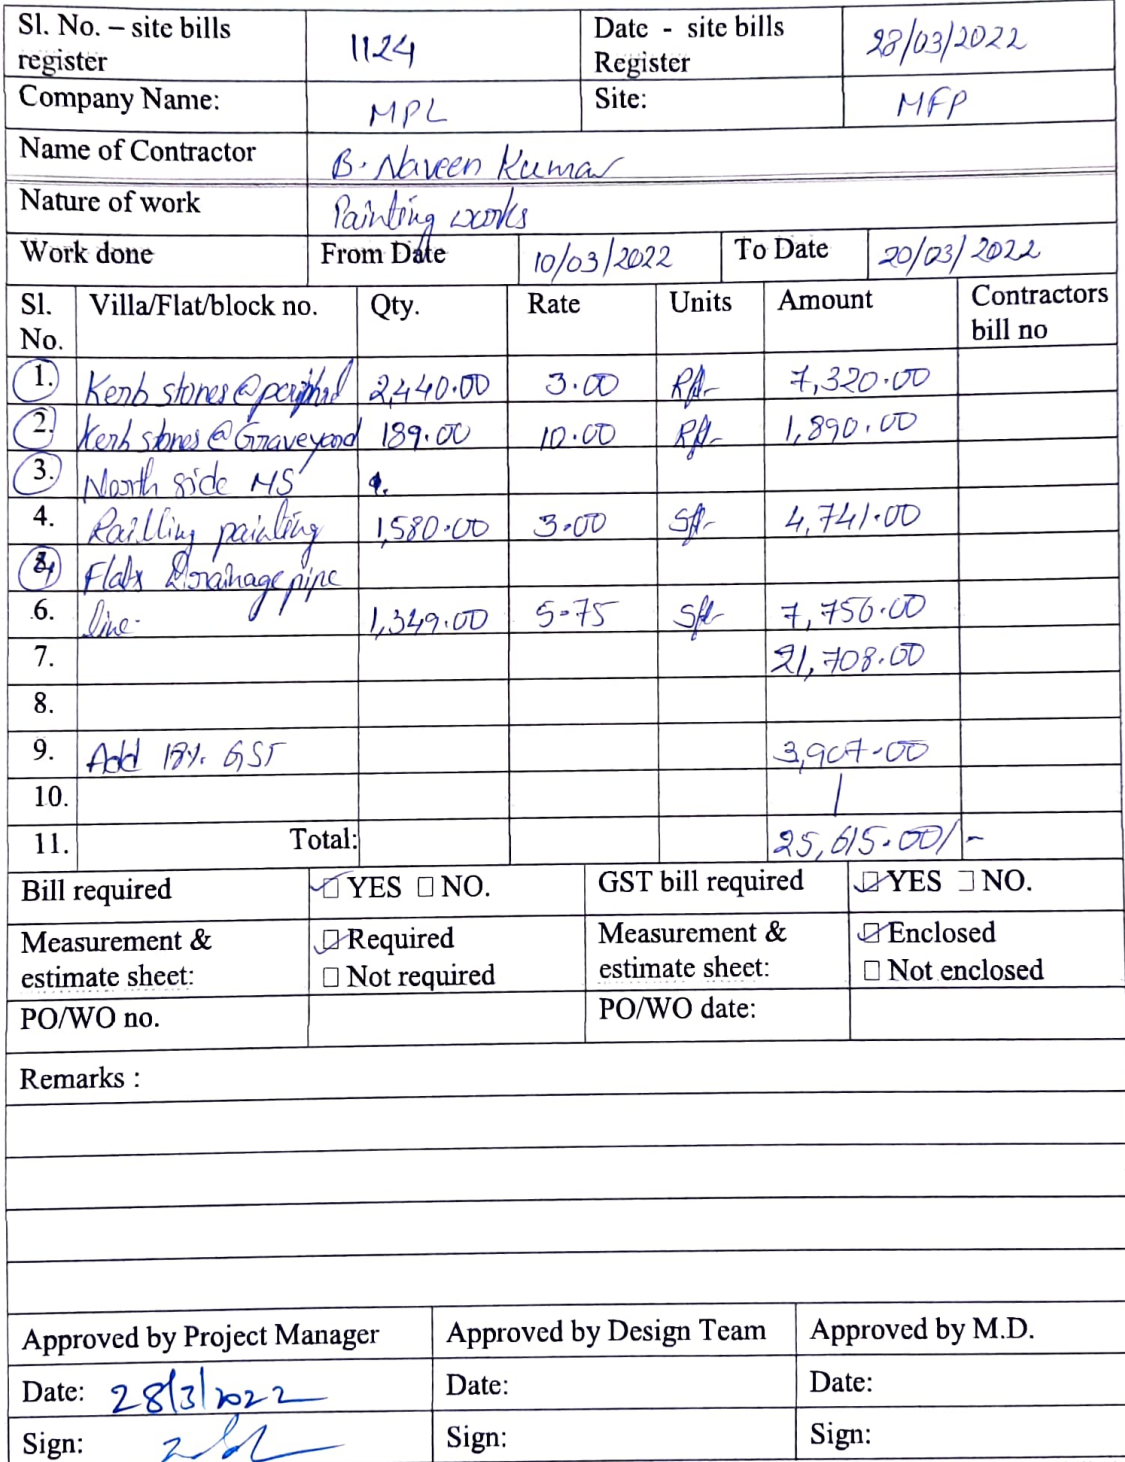 Sl. No. – site bills register 1124 Date - site bills Register 28/03/2022
Company Name: MPL Site: MFP
Name of Contractor B. Naveen Kumar
Nature of work Painting works
Work done From Date 10/03/2022 To Date 20/03/2022
Sl. No. Villa/Flat/block no. Qty. Rate Units Amount Contractors bill no
1. Kerb stones @ 2,440.00 3.00 Rft 7,320.00
2. Kerb stones @ Graveyard 189.00 10.00 Rft 1,890.00
3. North side MS
4. Railling painting 1,580.00 3.00 Sft 4,741.00
Flats Drainage pipe
6. line. 1,349.00 5.75 Sft 7,756.00
7. 21,708.00
8.
9. Add 18% GST 3,907.00
10.
11. Total: 25,615.00/-
Bill required YES NO. GST bill required YES NO.
Measurement & estimate sheet: Required Not required Measurement & estimate sheet: Enclosed Not enclosed
PO/WO no. PO/WO date:
Remarks :
Approved by Project Manager Approved by Design Team Approved by M.D.
Date: 28/3/2022 Date: Date:
Sign: Sign: Sign: